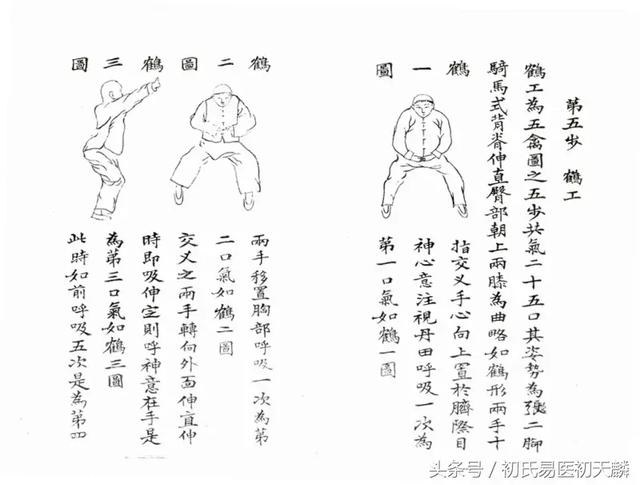 第五步　鶴工
鶴工為五禽圖之五步共氣二十五口其姿勢為張二腳
騎馬式背脊伸直臀部朝上兩膝為曲略如鶴形兩手十
指交叉手心向上置於臍際目
神心意注視丹田呼吸一次為
第一口氣如鶴一圖
鶴
一
圖
兩手移置胸部呼吸一次為第
二口氣如鶴二圖
鶴
二
圖
交叉之兩手轉向外面伸直伸
時即吸伸定則呼神意在手是
為第三口氣如鶴三圖
鶴
三
圖
此時如前呼吸五次是為第四
头条号／初氏易医初天麟